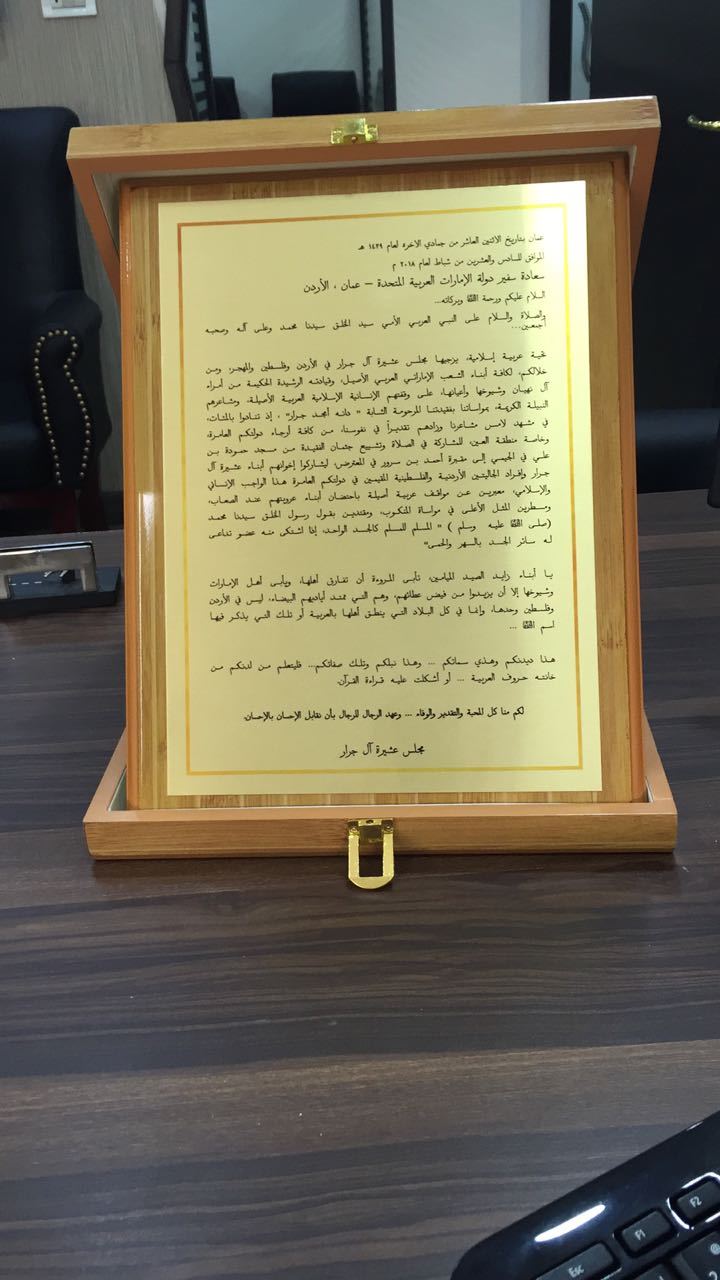 عمان بتاريخ الاثنين العاشر من جمادي الاخره لعام ١٤٣٩ هـ
الموافق للسادس والعشرين من شباط لعام ٢٠١٨ م
سعادة سفير دولة الإمارات العربية المتحدة – عمان ، الأردن
السلام عليكم ورحمة الله وبركاته...
والصلاة والسلام على النبي العربي الأمي سيد الخلق سيدنا محمد وعلى آله وصحبه
أجمعين...
تحية عربية إسلامية، يزجيها مجلس عشيرة آل جرار في الأردن وفلسطين والمهجر، ومن
خلالكم، لكافة أبناء الشعب الإماراتي العربي الأصيل، وقيادته الرشيدة الحكيمة من أمراء
آل نهيان وشيوخها وأعيانها، على وقفتهم الإنسانية الإسلامية العربية الأصيلة، ومشاعرهم
النبيلة الكريمة، بمواساتنا بفقيدتنا المرحومة الشابة " دانه أمجد جرار" ، إذ تنادوا بالمئات،
في مشهد لامس مشاعرنا وزادهم تقديراً في نفوسنا، من كافة أرجاء دولتكم العامرة،
وخاصة منطقة العين، للمشاركة في الصلاة وتشييع جثمان الفقيدة من مسجد حمودة بن
علي في الجيمي إلى مقبرة أحمد بن سرور في المعترض، ليشاركوا إخوانهم أبناء عشيرة آل
جرار وإفراد الجاليتين الأردنية والفلسطينية المقيمين في دولتكم العامرة هذا الواجب الإنساني
والإسلامي، معبرين عن مواقف عربية أصيلة باحتضان أبناء عروبتهم عند الصعاب،
ومسطرين المثل الأعلى في مواساة المنكوب، ومقتدين بقول رسول الخلق سيدنا محمد
(صلى الله عليه وسلم ) " المسلم للمسلم كالجسد الواحد، إذا اشتكى منه عضو تداعى
له سائر الجسد بالسهر والحمى"
يا أبناء زايد الصيد الميامين، تأبى المروءة أن تفارق أهلها، ويأبى أهل الإمارات
وشيوخها إلا أن يزيدوا من فيض عطائهم، وهم التي تمتد أياديهم البيضاء، ليس في الأردن
وفلسطين وحدها، وإنما في كل البلاد التي ينطق أهلها بالعربية أو تلك التي يذكر فيها
اسم الله ...
هذا ديدنكم وهذي سماتكم ... وهذا نبلكم وتلك صفاتكم... فليتعلم من لدنكم من
خانته حروف العربية ... أو أشكلت عليه قراءة القرآن.
لكم منا كل المحبة والتقدير والوفاء ... وعهد الرجال للرجال بأن نقابل الإحسان بالإحسان.
مجلس عشيرة آل جرار
Esc
F1
F2